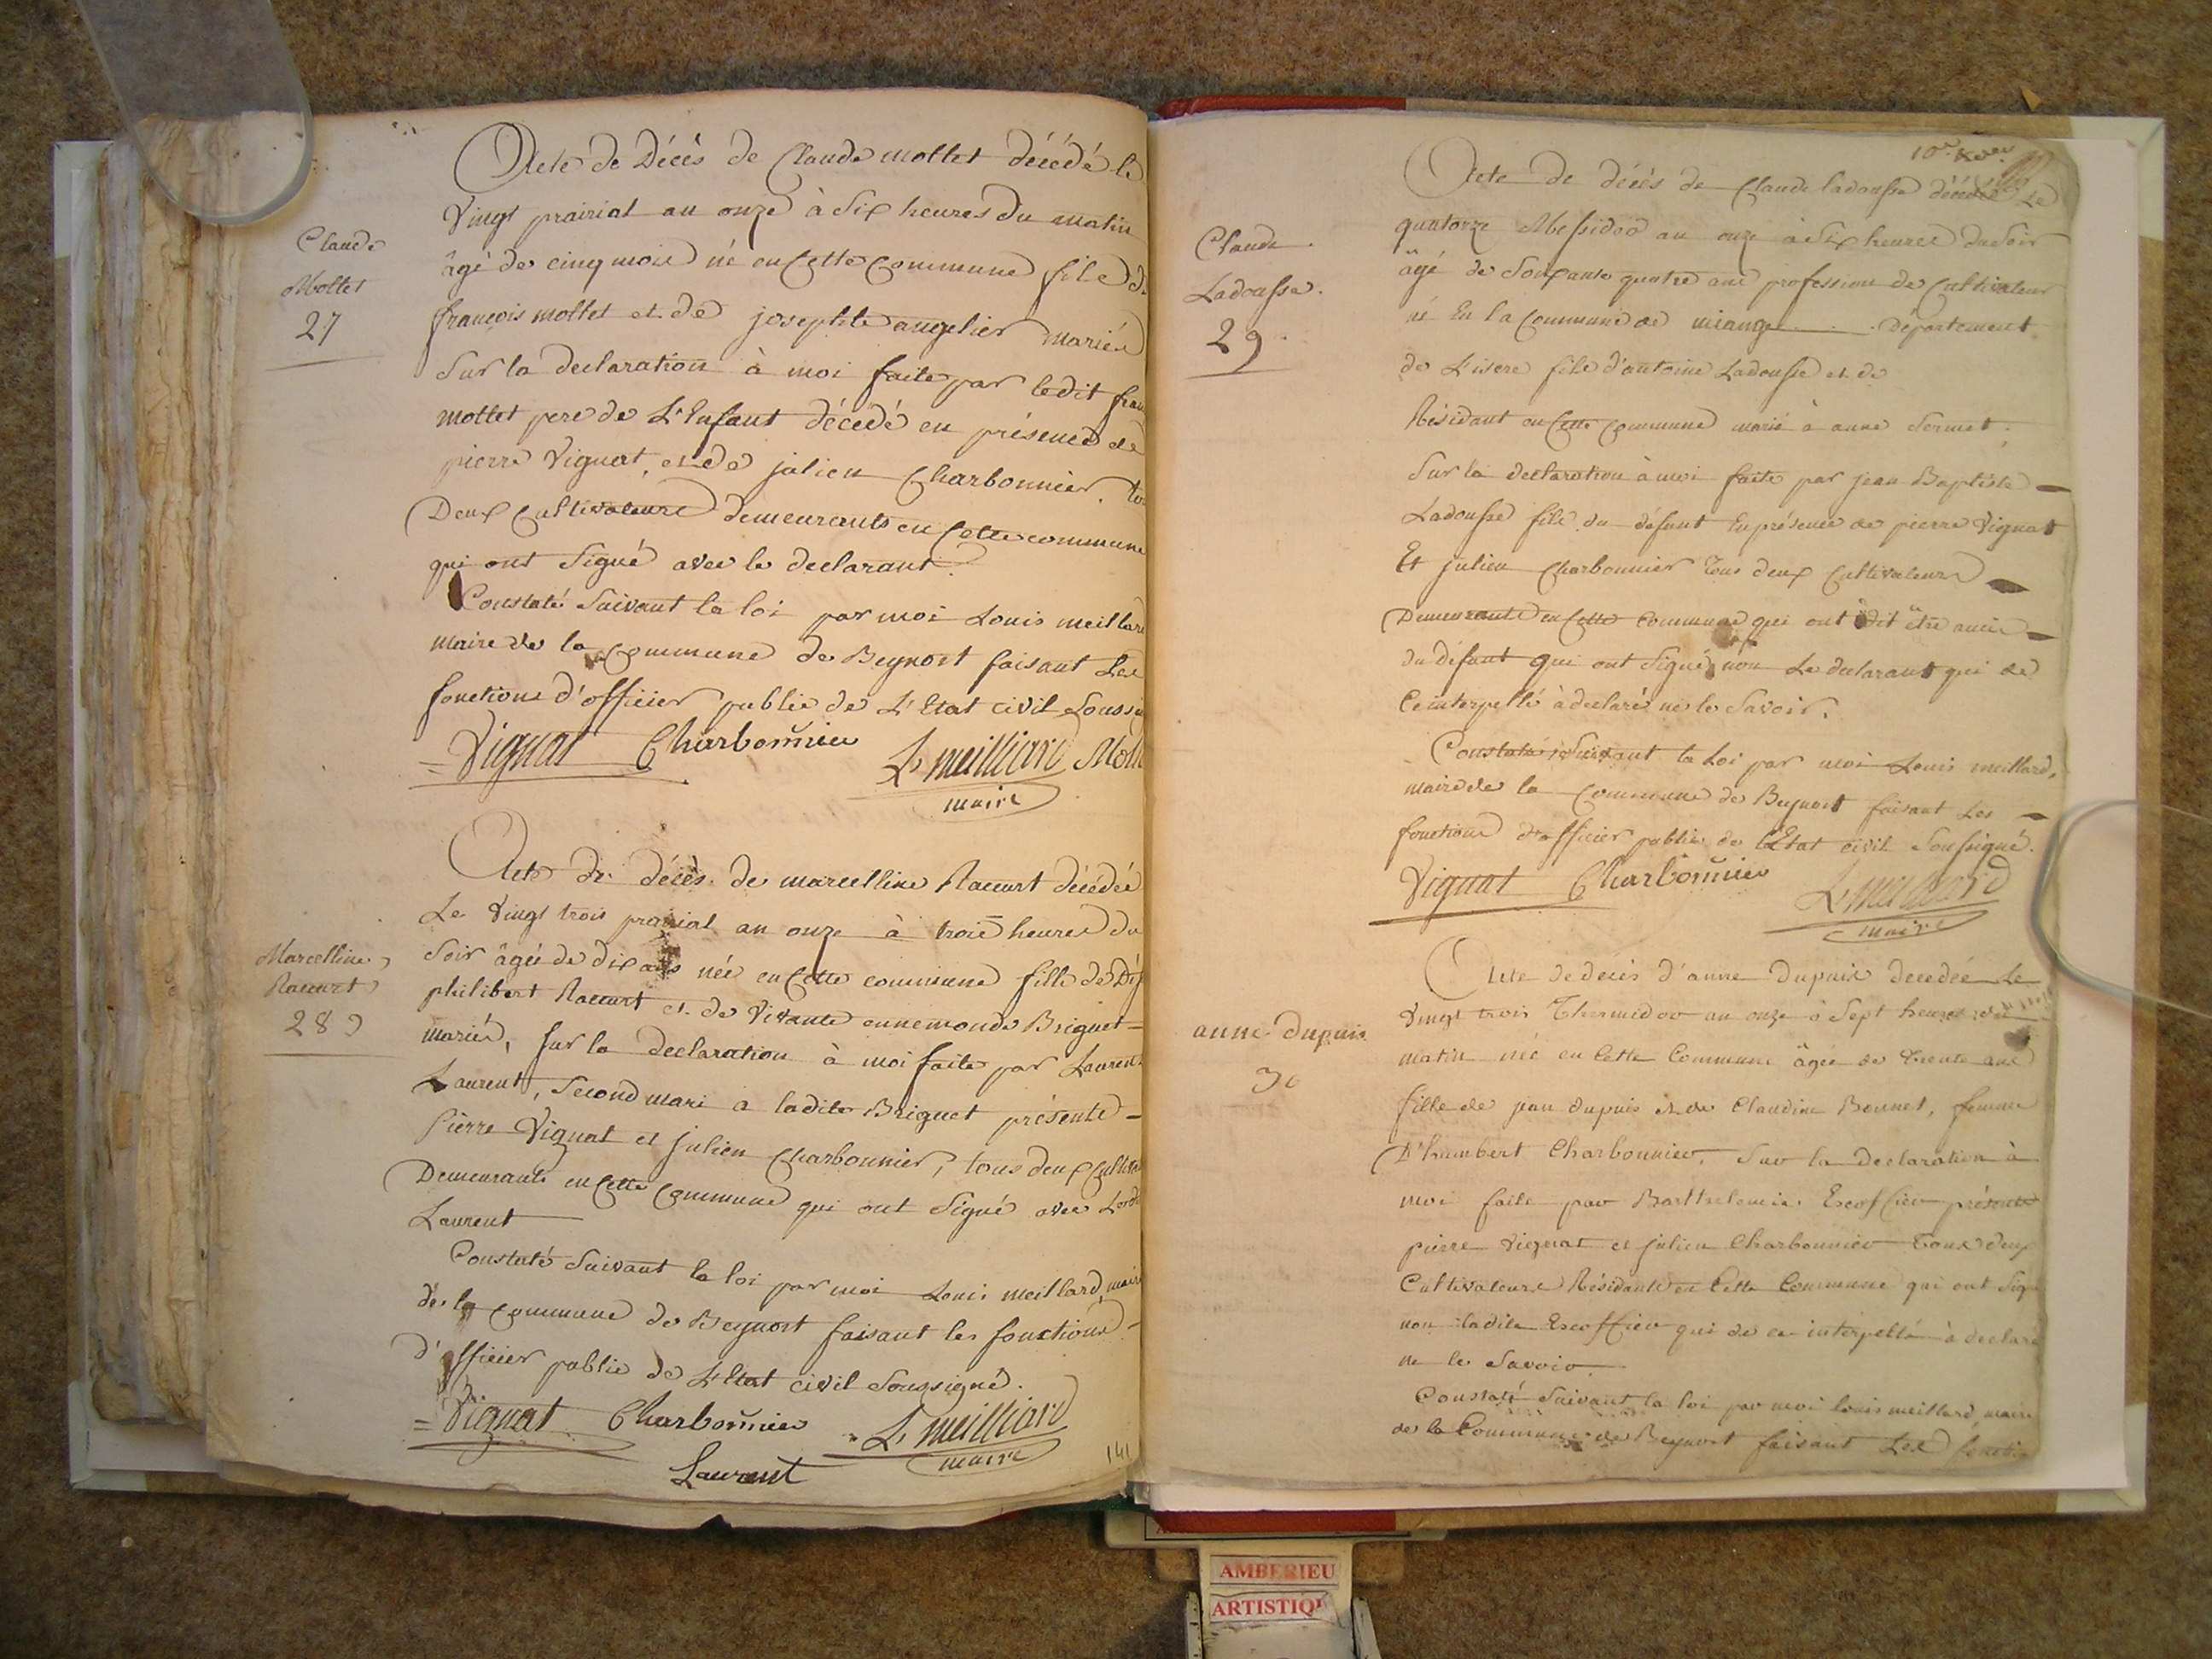 Acte de Décès de Claude mottet décédé le
vingt prairial an onze à Six heures du matin
Claude
Mottet
27
âgé de cinq mois né en Cette Commune fils de
françois mottet et de josephte angelier mariés
Sur la declaration à moi faite par ledit fran
mottet pere de L'Enfant décédé en présence de
pierre Vignat, et de julien Charbonnier. to
Deux Cultivateurs demeurants en Cette commune
qui ont Signé avec le declarant.
Constaté Suivant la loi par moi Louis meillard
maire de la Commune de Beynost faisant Les
fonctions d'officier public de L'Etat civil Soussi
Vignat Charbonnier L. meilliard Mott
maire
Acte de décès de marcelline Raccurt décédée
Le vingt trois prairial an onze à trois heures du
Marcelline
Raccurt
28
Soir âgée de dix ans née en Cette commune fille de Déf
philibert Raccurt et de Vivante ennemonde Briguet
mariés, Sur la declaration à moi faite par Laurent
Laurent, Second mari a ladite Briguet présente
Pierre Vignat et julien Charbonnier, tous deux Cultiv
Demeurants en Cette Commune qui ont Signé avec Ledi
Laurent
Constaté Suivant la loi par moi Louis meillard, mair
de la commune de Beynost faisant les fonctions
d'officier public de L'Etat civil Soussigné.
Vignat Charbonnier L. meilliard
maire
Laurent
141
10e
Acte de décès de Claude Ladousse décédé Le
quatorze Messidor an onze à Six heures du Soir
Claude
Ladousse.
29
âgé de Soixante quatre ans profession de Cultivateur
né En la Commune de miange département
de L'isere fils d'antoine Ladousse et de
Résidant en Cette Commune marié à anne Sermet;
Sur la declaration à moi faite par jean Baptiste
Ladousse fils du défunt En présence de pierre Vignat
Et julien Charbonnier Tous deux Cultivateurs
Demeurants en Cette Commune qui ont dit être amis
du défunt qui ont Signé non Le declarant qui de
Ce interpellé à declaré ne le Savoir.
Constaté Suivant la Loi par moi Louis meillard,
maire de la Commune de Beynost faisant Les
fonctions d'officier public de L'Etat civil Soussigné.
Vignat Charbonnier L. meilliard
maire
Acte de décès d'anne Dupuis decedée Le
vingt trois Thermidor an onze à Sept heures du
anne Dupuis
30
matin née en Cette Commune âgée de Trente ans
fille de jean dupuis et de Claudine Bonnet, femme
D'humbert Charbonnier, Sur la Declaration à
moi faite par Barthelemie Escoffier présents
pierre Vignat et julien Charbonnier Tous deux
Cultivateurs Résidants en Cette Commune qui ont Sign
non ladite Escoffier qui de ce interpellé à declaré
ne le Savoir
Constaté Suivant la loi par moi louis meillard, maire
de la Commune de Beynost faisant Les fonctio
AMBERIEU
ARTISTIQ